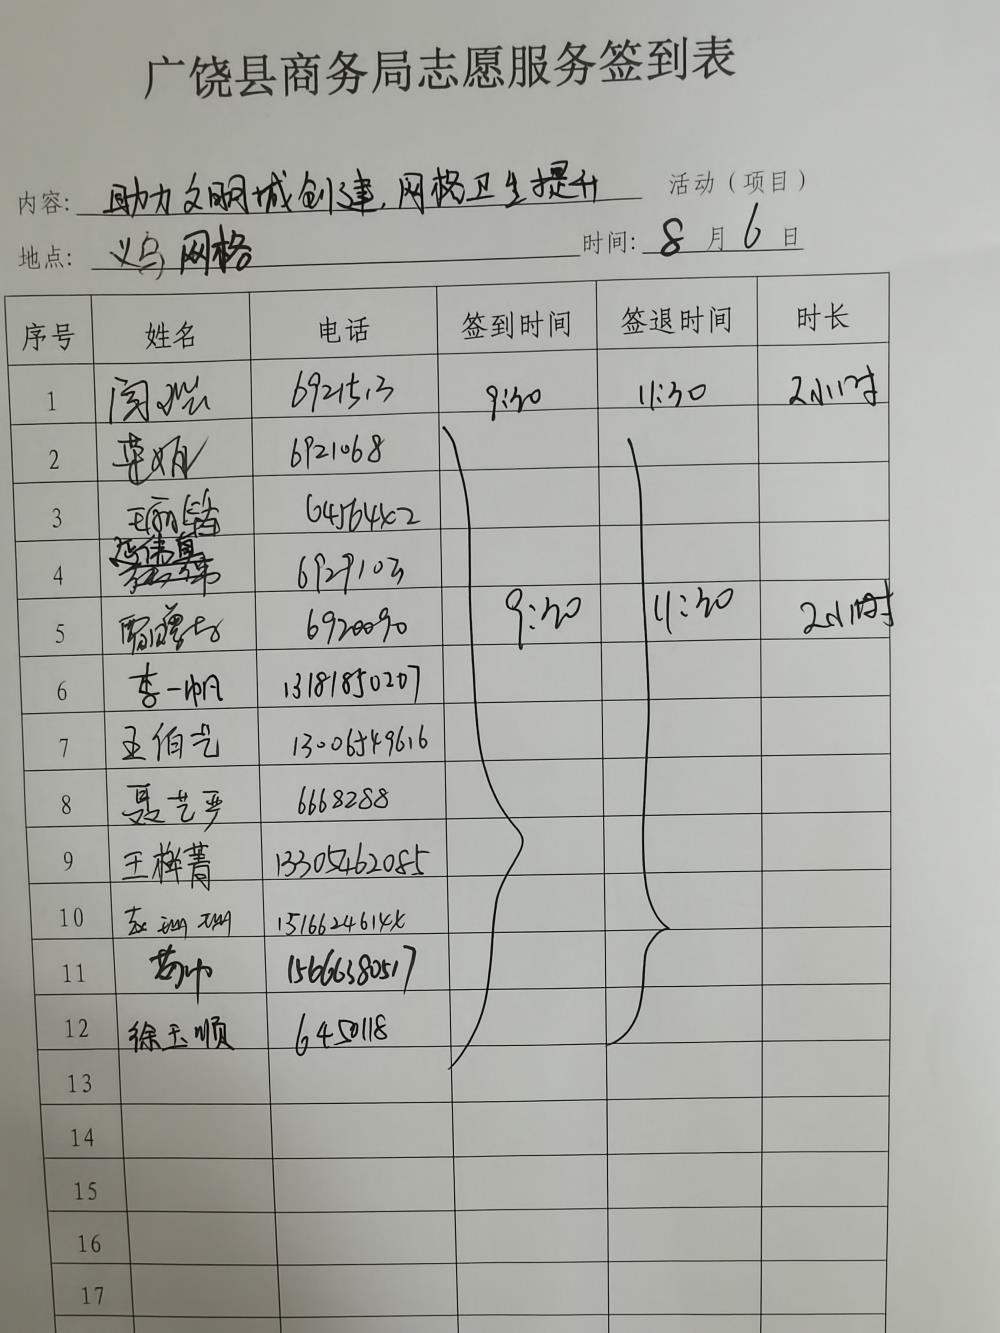 广饶县商务局志愿服务签到表
内容: 助力文明城创建,网格卫生提升 活动（项目）
地点: 义乌网格 时间: 8月6日
序号 姓名 电话 签到时间 签退时间 时长
1 6921513 9:30 11:30 2小时
2 6921068
3 64564x2
4 6929103
5 6920090 9:30 11:30 2小时
6 李一帆 13181850207
7 王伯艺 13006549616
8 聂艺严 6668288
9 王梓菁 13305462085
10 151662461xx
11 15666380517
12 徐玉顺 6450118
13
14
15
16
17